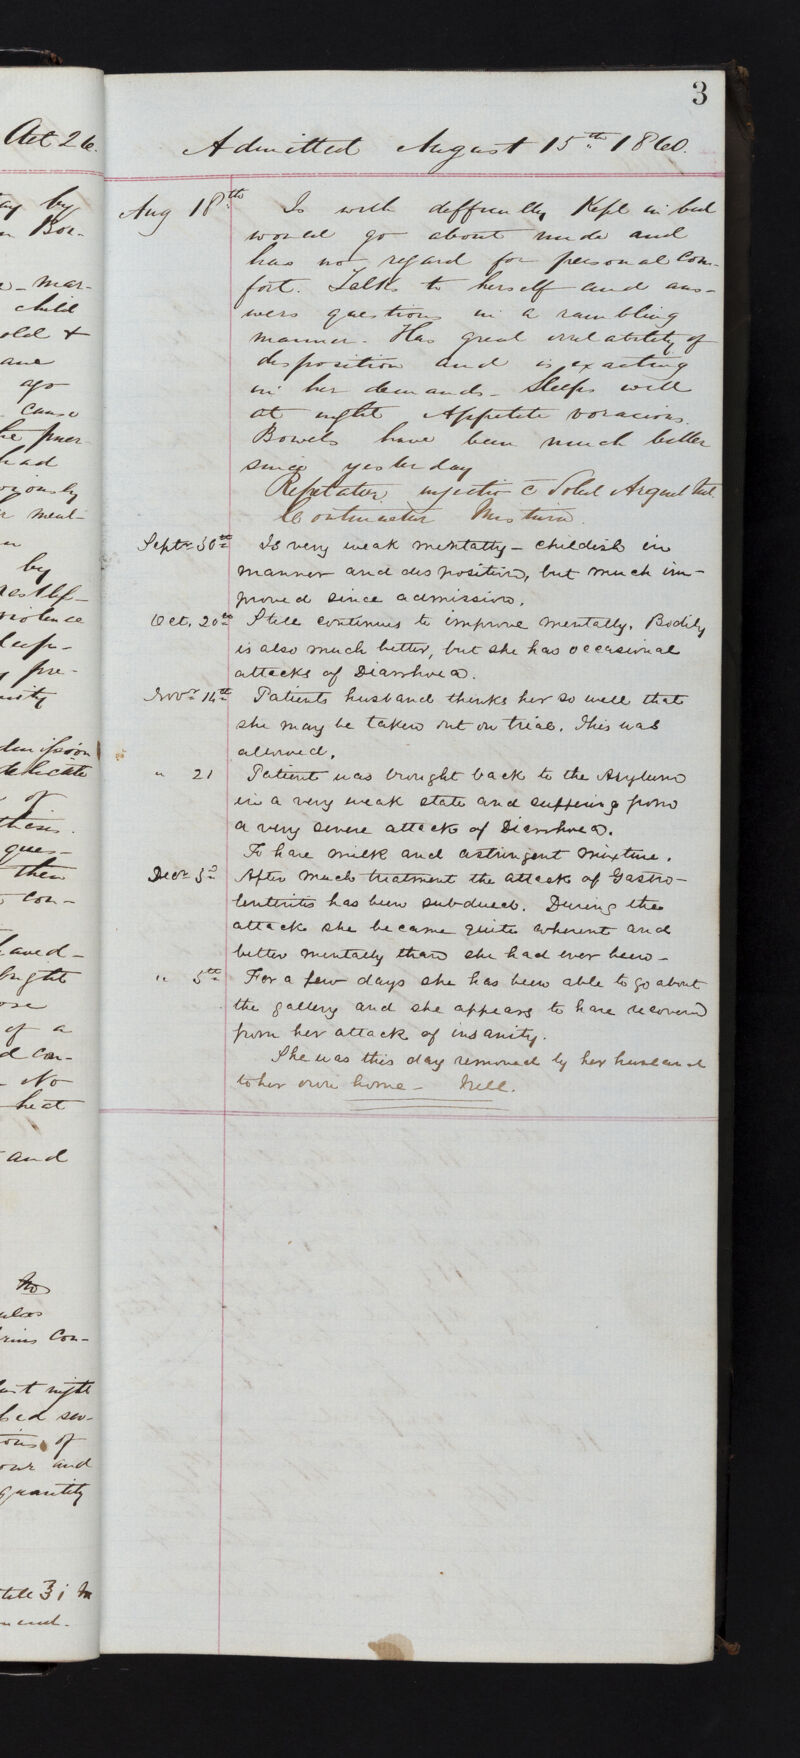 3
Aet 26.
Admitted August 15th 1860.
Aug 18th Is with difficulty Kept in bed
would go about nude and
has no regard for personal com-
fort. Talks to herself and ans-
wers questions in a rambling
manner. Has great irritability of
disposition and is exacting
in her demands - Sleeps well
at night Appetite voracious.
Bowels have been much better
since yesterday
Repetatur injectio c Solut Argent Nit
Continuetur Mistura.
Septr 30th Is very weak mentally - childish in
manner and disposition, but much im-
proved since admission.
Oct. 20th Still continues to improve mentally. Bodily
is also much better, but she has occasional
attacks of Diarrhoea.
Novr 14th Patients husband thinks her so well that
she may be taken out on trial. This was
allowed.
" 21 Patient was brought back to the Asylum
in a very weak state and suffering from
a very severe attack of Diarrhoea.
To have milk and astringent mixture.
Decr 3d After much treatment the attack of Gastro-
Enteritis has been subdued. During the
attack she became quite coherent and
better mentally than she had ever been -
" 5th For a few days she has been able to go about
the gallery and she appears to have recovered
from her attack of insanity.
She was this day removed by her husband
to her own home - Well.
by
Bor-
mar-
child
old +
ane
ago
cause
puer-
had
meal-
by
violence
pre-
dmission
delicate
of
ques-
then
con-
bright
of a
No
heat
and
Con-
night
of
and
quantity